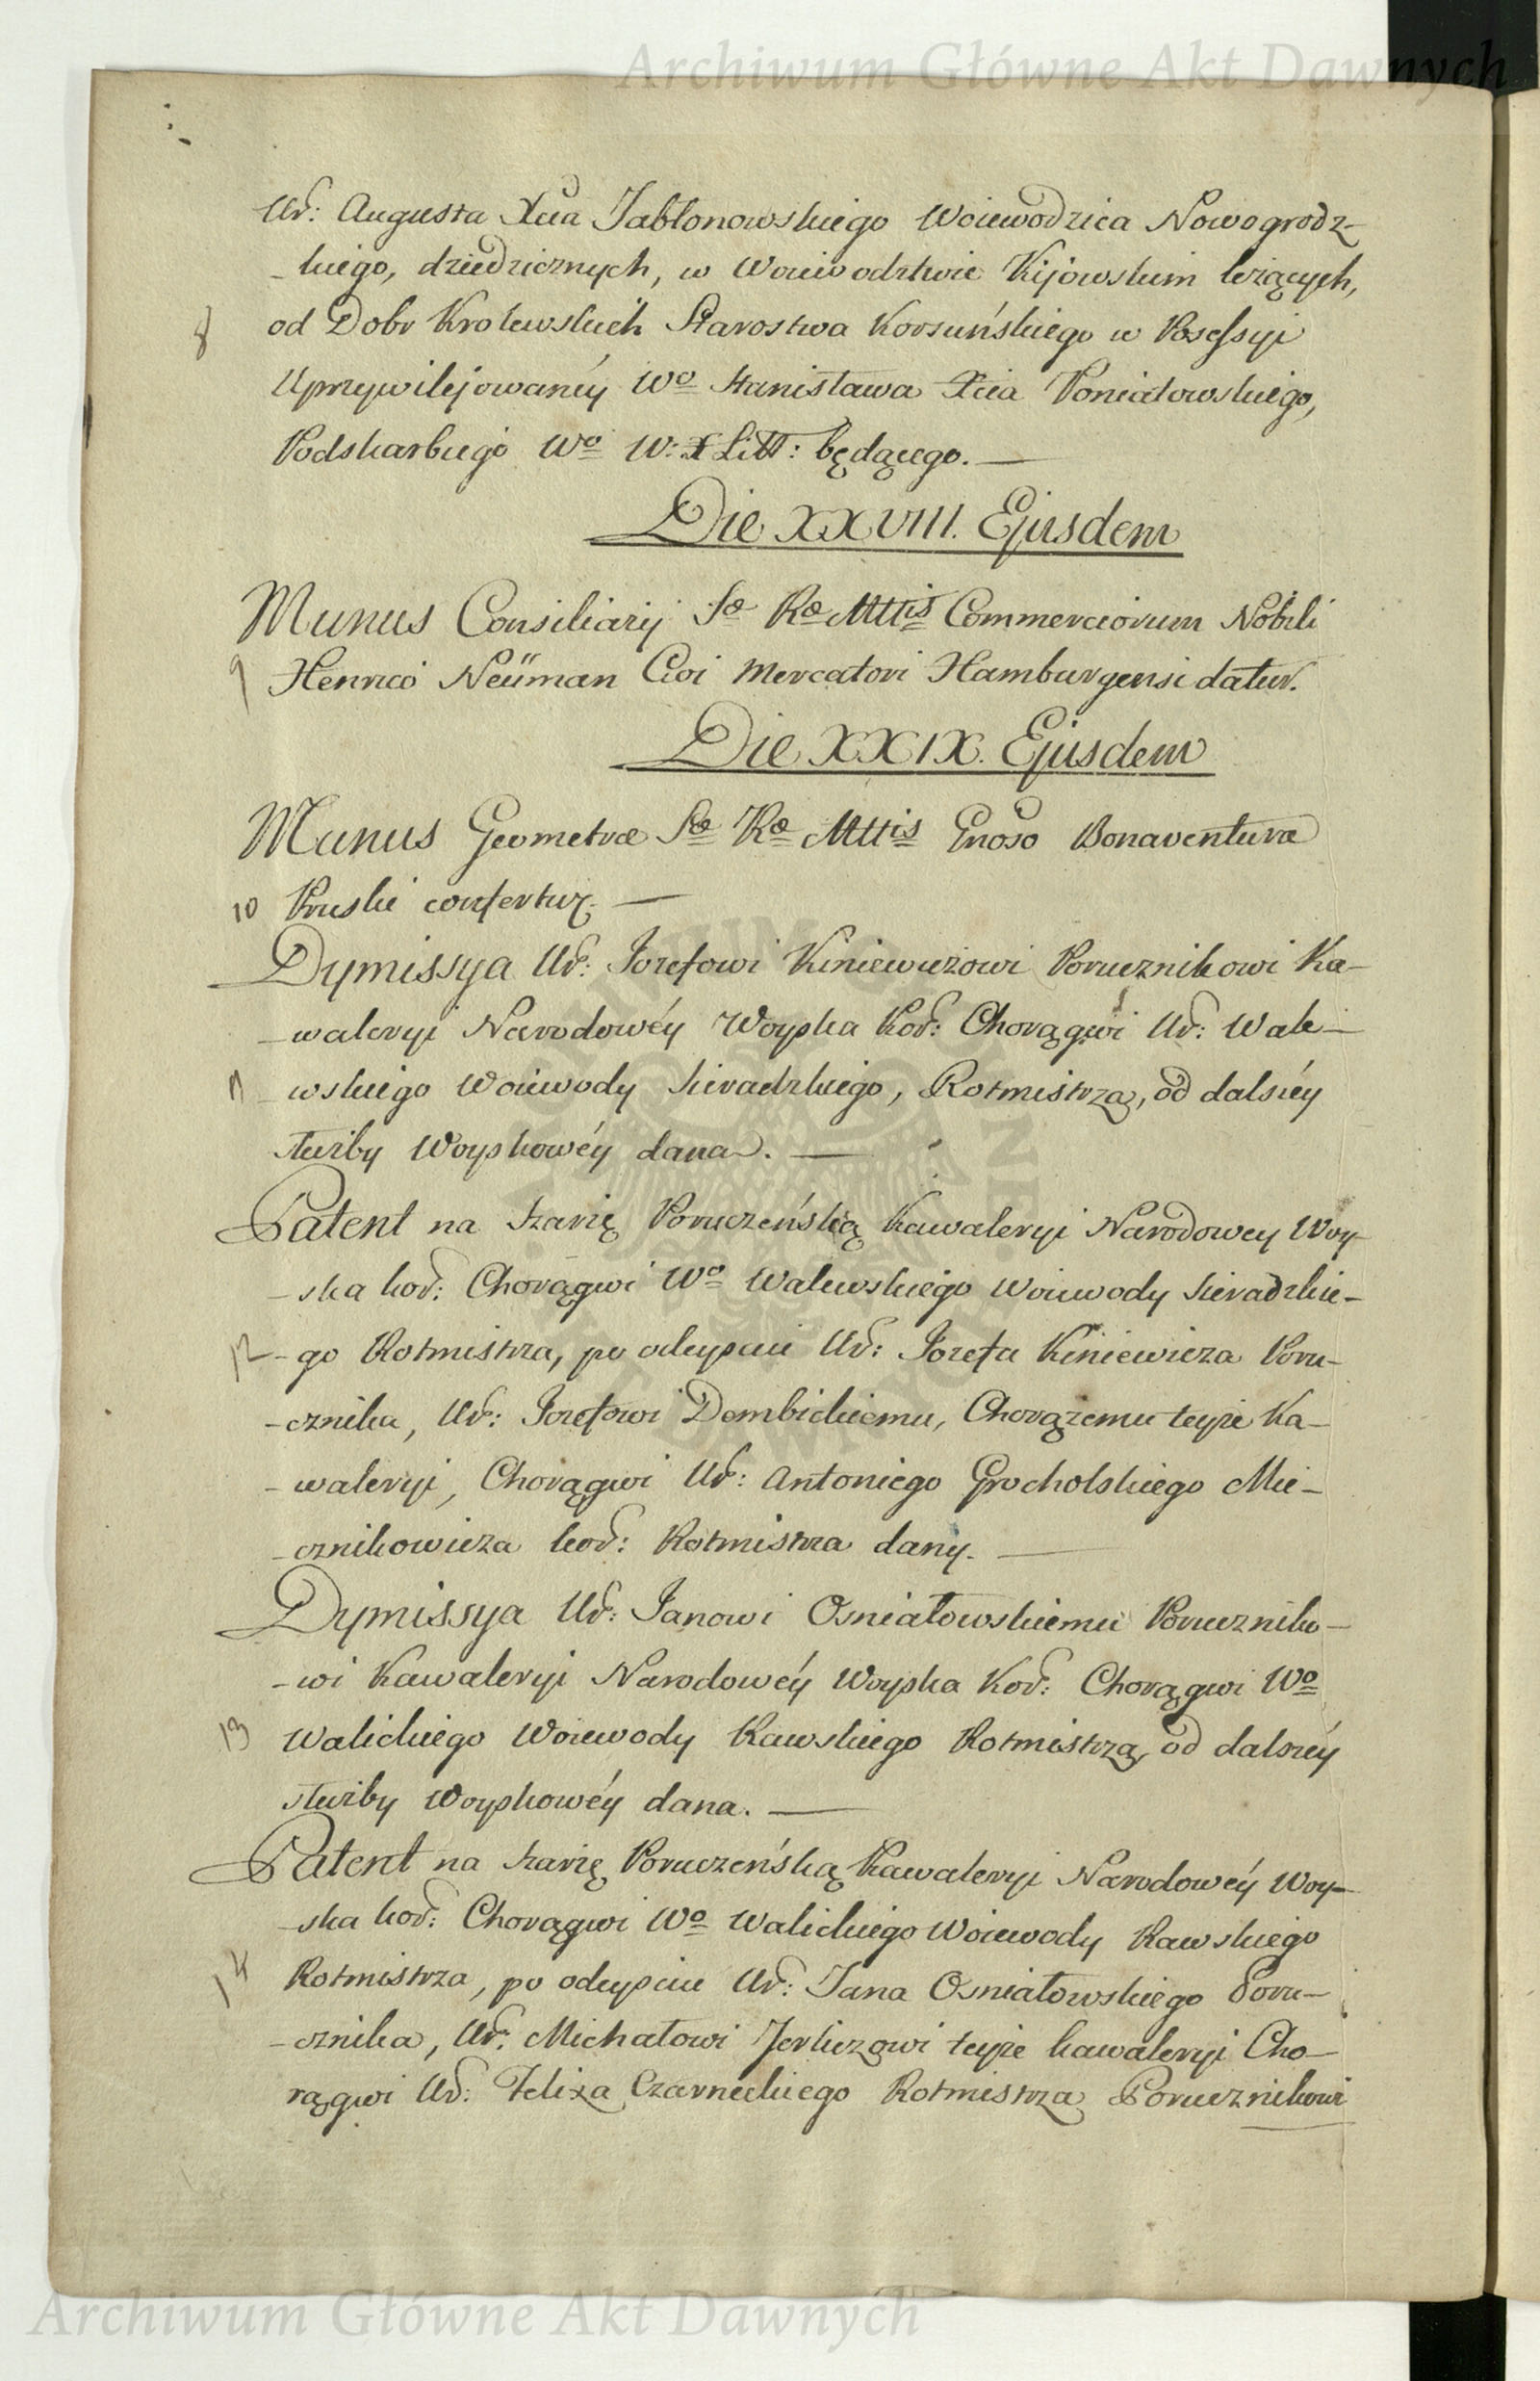 Archiwum Główne Akt Dawnych
Ur: Augusta Xcia Jabłonowskiego Woiewodzica Nowogrodz-
-kiego, dziedzicznych, w Woiewodztwie Kijowskim leżących,
8 od Dobr Krolewskich Starostwa Korsuńskiego w Possessyi
Uprzywilejowanéy Wo Stanisława Xcia Poniatowskiego,
Podskarbiego Wo W: X Litt: będącego. —
Die XXVIII. Ejusdem
Munus Consiliarij Sæ Ræ Mttis Commerciorum Nobili
9 Henrico Neüman Civi Mercatori Hamburgensi datur.
Die XXIX. Ejusdem
Munus Geometræ Sæ Ræ Mttis Gnoso Bonaventuræ
10 Pruski confertur. —
Dymissya Ur: Jozefowi Kiniewiczowi Porucznikowi Ka-
-waleryi Narodowéy Woyska Kor: Chorągwi Ur: Wale-
11 -wskiego Woiewody Sieradzkiego, Rotmistrza, od dalszéy
służby Woyskowéy dana. —
Patent na szarżę Poruczeńską Kawaleryi Narodowey Woy-
-ska kor: Chorągwi Wo Walewskiego Woiewody Sieradzkie-
12 -go Rotmistrza, po odeyściu Ur: Jozefa Kiniewicza Poru-
-cznika, Ur: Jozefowi Dembickiemu, Chorążemu teyże Ka-
-waleryi, Chorągwi Ur: Antoniego Grocholskiego Mie-
-cznikowicza kor: Rotmistrza dany. —
Dymissya Ur: Janowi Osniałowskiemu Poruczniko-
-wi Kawaleryi Narodowéy Woyska Kor: Chorągwi Wo
13 Walickiego Woiewody Rawskiego Rotmistrza, od dalszéy
służby Woyskowéy dana. —
Patent na szarżę Poruczeńską Kawaleryi Narodowéy Woy-
-ska kor: Chorągwi Wo Walickiego Woiewody Rawskiego
14 Rotmistrza, po odeyściu Ur: Jana Osniałowskiego Poru-
-cznika, Ur: Michałowi Jerliczowi teyże kawaleryi Cho-
rągwi Ur: Felixa Czarneckiego Rotmistrza Porucznikowi
Archiwum Główne Akt Dawnych